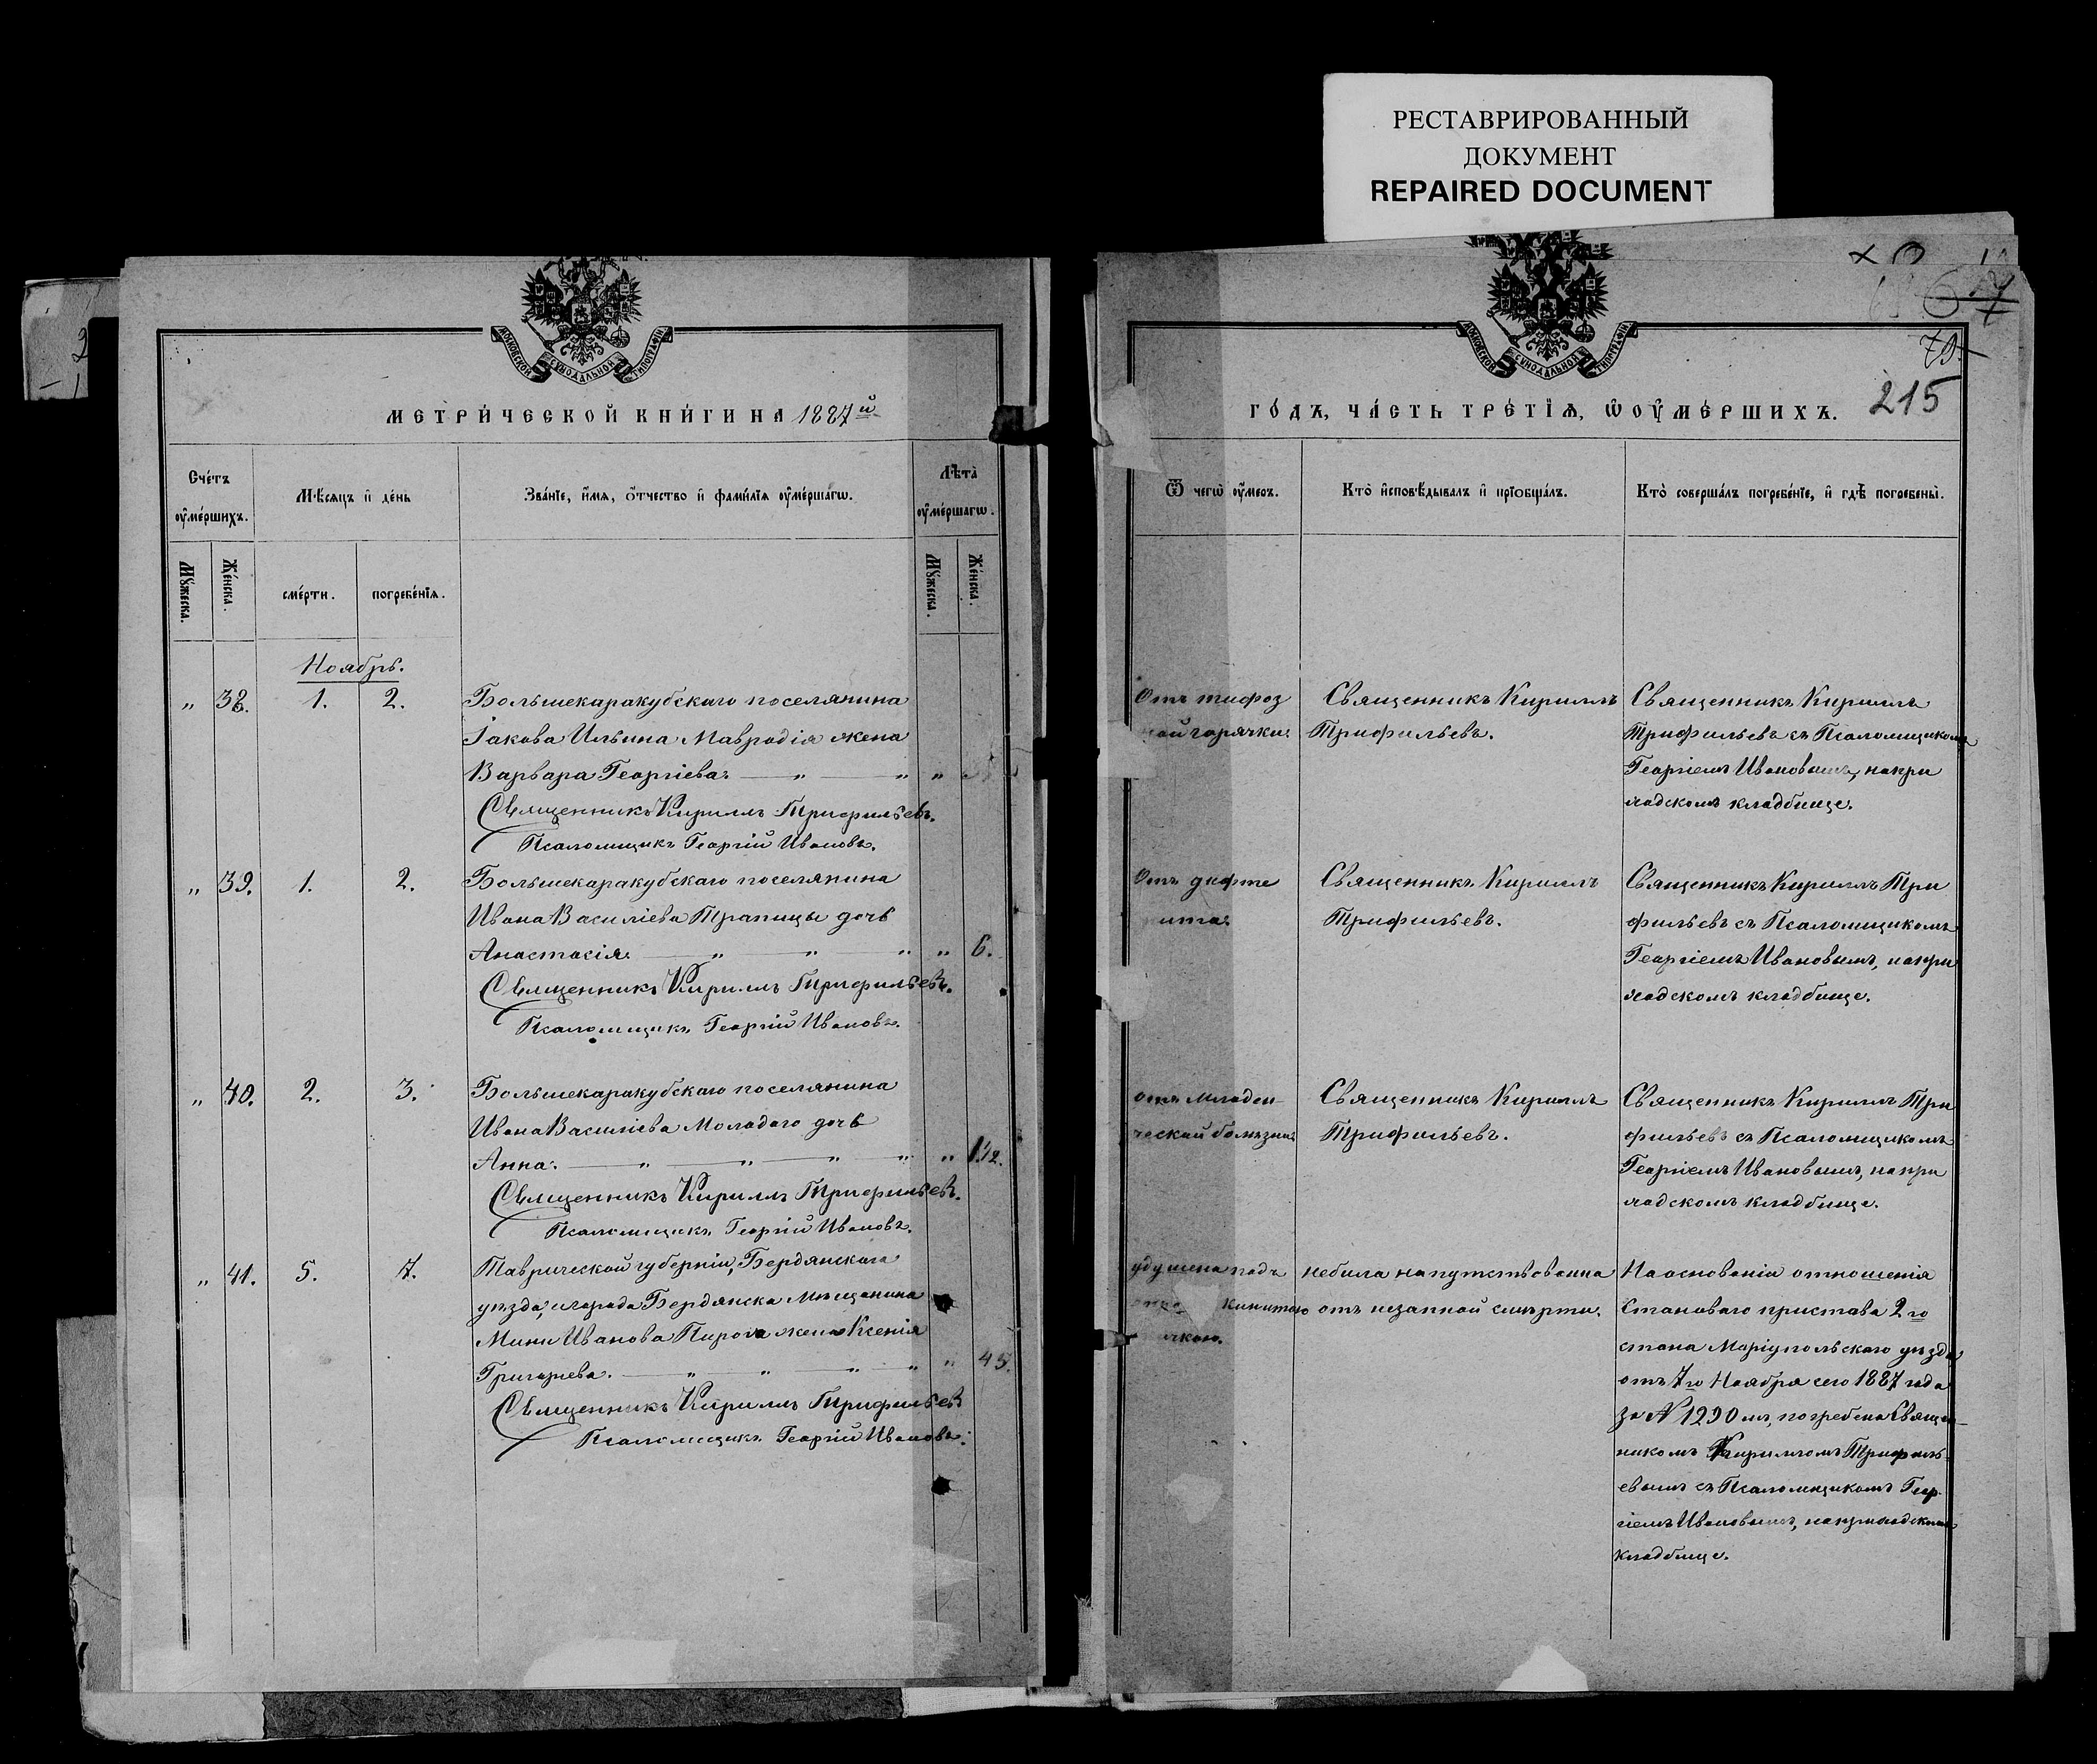 РЕСТАВРИРОВАННЫЙ
ДОКУМЕНТ
REPAIRED DOCUMENT
МОСКОВСКОЙ СУНОДАЛЬНОЙ ТИПОГРАФІИ
МЕТРИ́ЧЕСКОЙ КНИ́ГИ НА 1887й
Сче́тъ оумершихъ.
Мѣсяцъ и де́нь
Зва́ніе, и́мя, о́тчество и фами́лія оуме́ршагѡ.
Лѣта̀ оуме́ршагѡ.
Мꙋжеска.
Же́нска.
сме́рти.
погребе́нія.
Мꙋжеска.
Же́нска.
Ноябрь.
„ 38. 1. 2. Большекаракубскаго поселянина
Іакова Ильина Мавродія жена
Варвара Георгіева. — „ — „ „
Священникъ Кириллъ Трифильевъ.
Псаломщикъ Георгій Ивановъ.
„ 39. 1. 2. Большекаракубскаго поселянина
Ивана Василіева Трапицы дочь
Анастасія. — „ — „ — „ „ 6.
Священникъ Кириллъ Трифильевъ.
Псаломщикъ Георгій Ивановъ.
„ 40. 2. 3. Большекаракубскаго поселянина
Ивана Василіева Молодаго дочь
Анна. — „ — „ — „ — „ „
Священникъ Кириллъ Трифильевъ.
Псаломщикъ Георгій Ивановъ.
„ 41. 5. 7. Таврической губерніи, Бердянскаго
уѣзда, и города Бердянска Мѣщанина
Мины Иванова жена Ксенія
Григорьева. — „ — „ — „ — „ „ 45.
Священникъ Кириллъ Трифильевъ
Псаломщикъ Георгій Ивановъ.
МОСКОВСКОЙ СУНОДАЛЬНОЙ ТИПОГРАФІИ
ГО́ДЪ, ЧА́СТЬ ТРЕ́ТІѦ, Ѡ ОУМЕ́РШИХЪ.
215
Ѿ чегѡ̀ оу́меръ.
Кто̀ исповѣ́дывалъ и пріобща́лъ.
Кто̀ соверша́лъ погребе́ніе, и гдѣ̀ погребены̀.
Отъ тифоз
ной горячки.
Священникъ Кириллъ
Трифильевъ.
Священникъ Кириллъ
Трифильевъ съ Псаломщикомъ
Георгіемъ Ивановымъ, на при
ходскомъ кладбище.
Отъ дифте
рита.
Священникъ Кириллъ
Трифильевъ.
Священникъ Кириллъ Три
фильевъ съ Псаломщикомъ
Георгіемъ Ивановымъ, на при
ходскомъ кладбище.
отъ младен
ческой болѣзни.
Священникъ Кириллъ
Трифильевъ.
Священникъ Кириллъ Три
фильевъ съ Псаломщикомъ
Георгіемъ Ивановымъ, на при
ходскомъ кладбище.
удушена подъ
небыла напутствована
отъ незапной смерти.
На основаніи отношенія
Становаго пристава 2го
стана Маріупольскаго уѣзда
отъ 7го Ноября сего 1887 года
за N 1290мъ, погребена Священ
никомъ Кирилломъ Трифиль
евымъ съ Псаломщикомъ Геор
гіемъ Ивановымъ, на приходскомъ
кладбище.